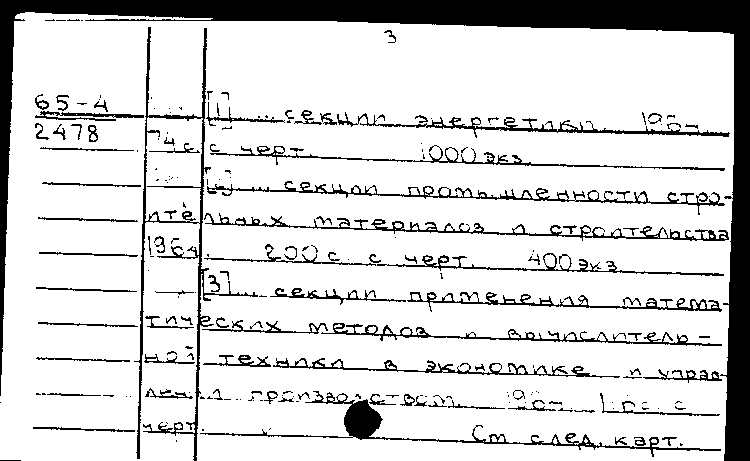 3
65-4 [1] ... секции энергетики. 1964.
2478 74 с. с черт. 1000 экз.
[2] ... секции промышленности строи-
тельных материалов и строительства
1964. 200 с. с черт. 400 экз.
[3] ... секции применения матема-
тических методов и вычислитель-
ной техники в экономике и управ-
лении производством. 1964. с
черт. См. след. карт.